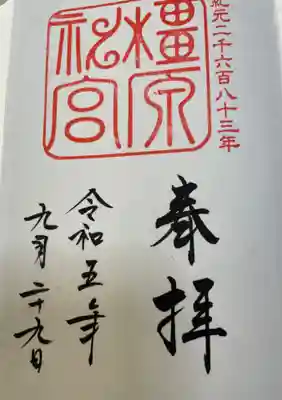 紀元二千六百八十三年
橿原
神宮
奉拝
令和五年
九月二十九日